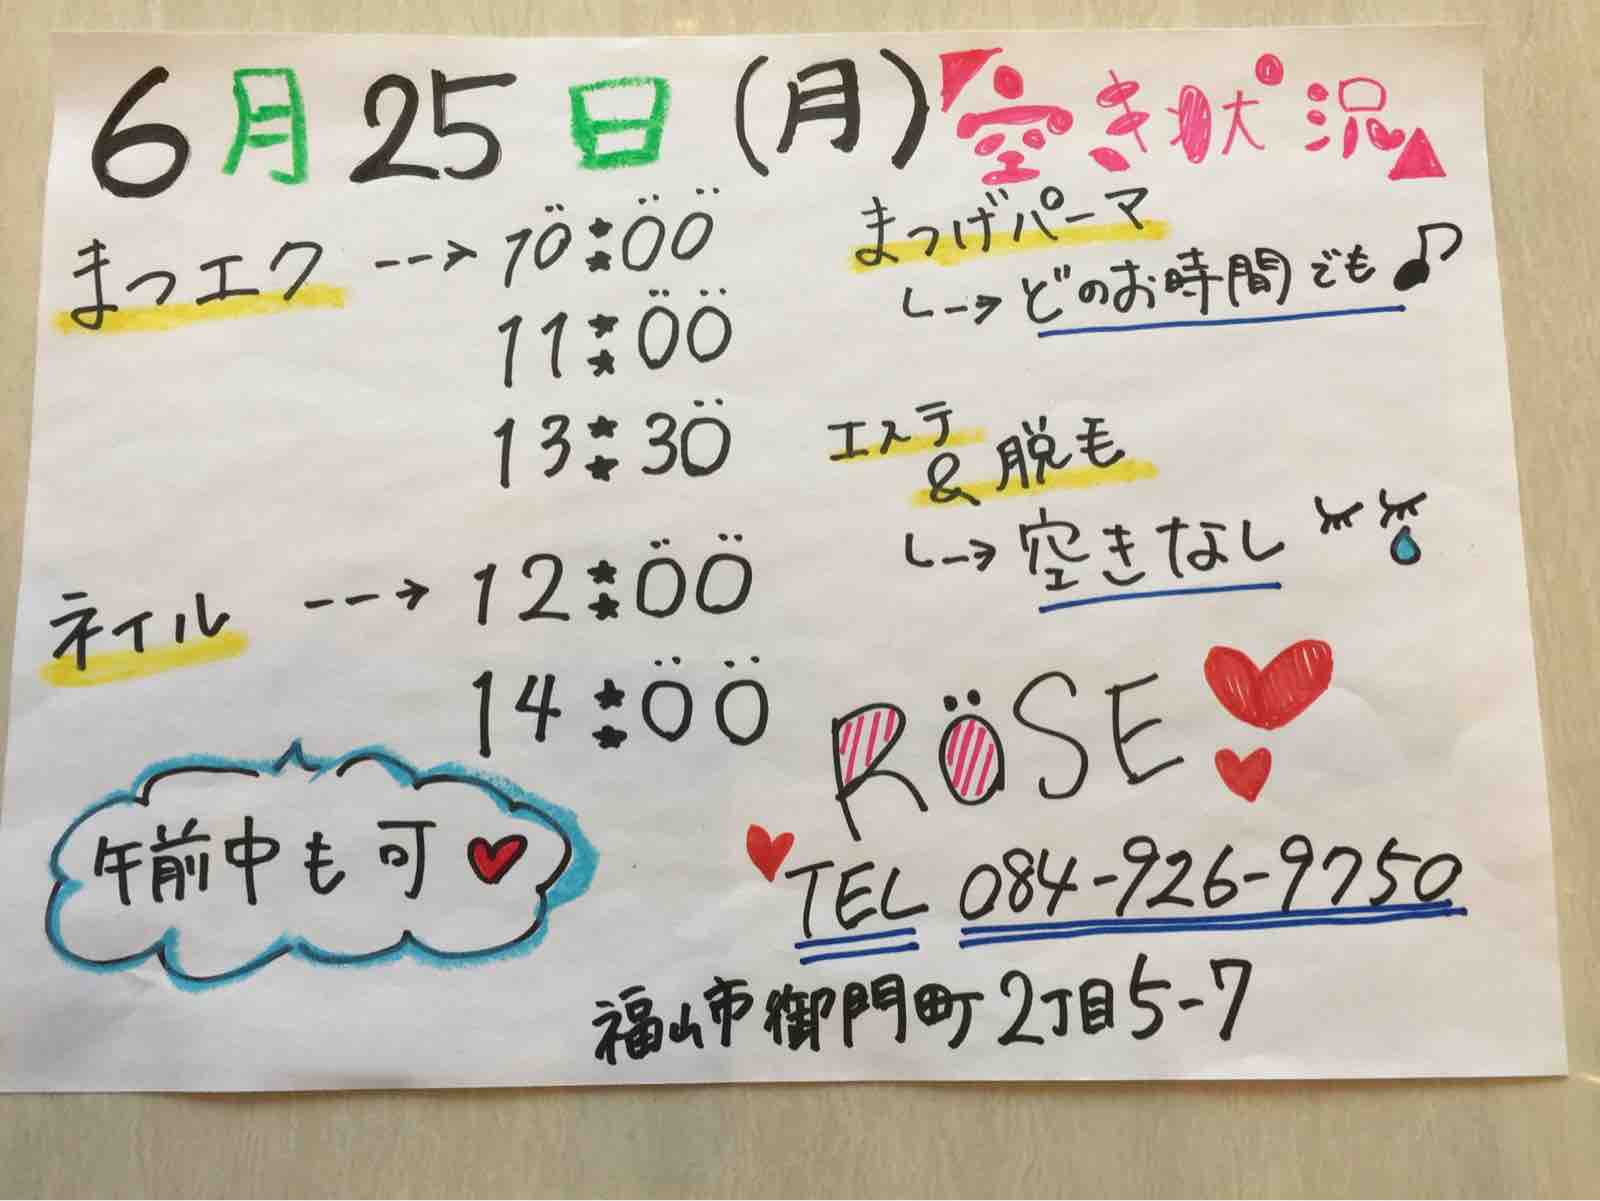 6月25日(月)空き状況
まつエク --→ 10:00
11:00
13:30
ネイル --→ 12:00
14:00
午前中も可
まつげパーマ
→ どのお時間でも♪
エステ
& 脱毛
→ 空きなし
ROSE
TEL 084-926-9750
福山市御門町2丁目5-7